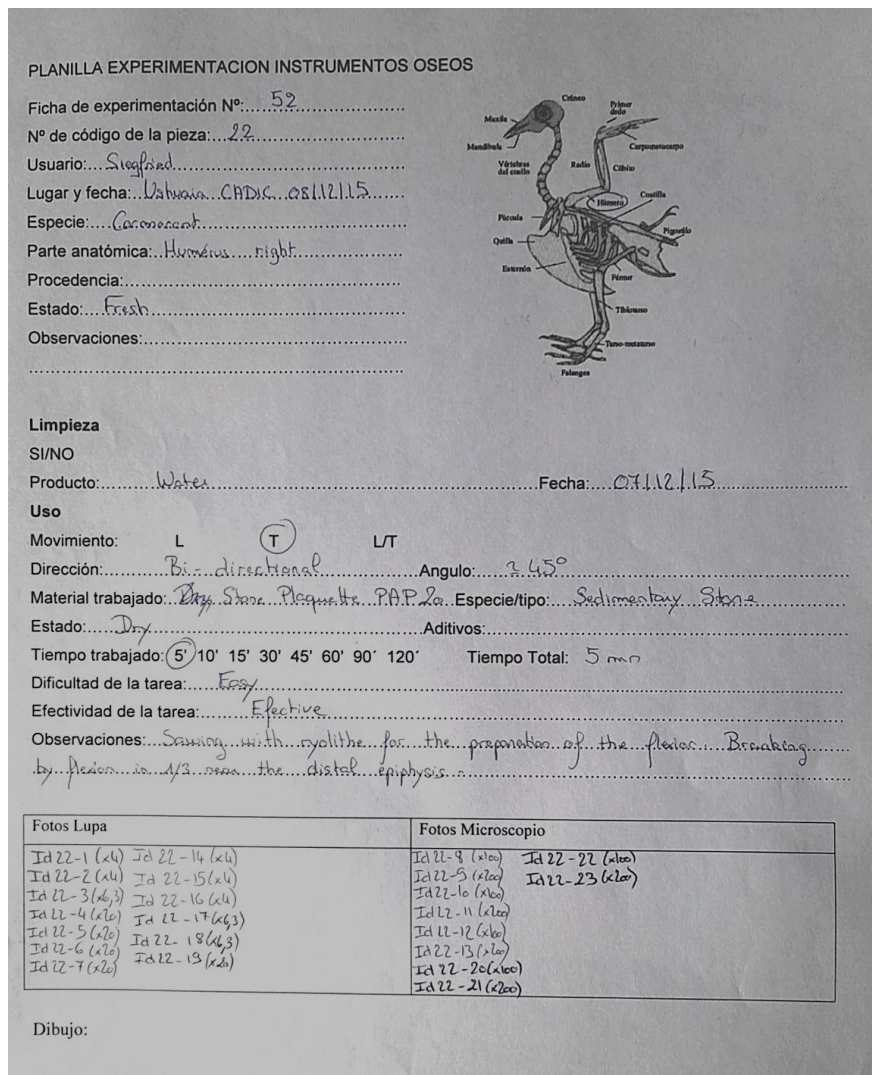 PLANILLA EXPERIMENTACION INSTRUMENTOS OSEOS
Ficha de experimentación Nº:....52
Nº de código de la pieza:...22
Usuario:...Siegfried
Lugar y fecha:..Ushuaia CADIC 08/12/15
Especie:....Cormorant
Parte anatómica:..Humérus right
Procedencia:
Estado:...Fresh
Observaciones:
Cráneo
Primer dedo
Maxila
Mandíbula
Carpometacarpo
Vértebras del cuello
Radio
Cúbito
Húmero
Costilla
Fúrcula
Pigostilo
Quilla
Esternón
Fémur
Tibiotarso
Tarso-metatarso
Falanges
Limpieza
SI/NO
Producto:.........Water Fecha:....07/12/15
Uso
Movimiento: L T L/T
Dirección:..........Bi-directional Angulo:....≥ 45°
Material trabajado:..Dry Stone Plaquette PAP2a Especie/tipo:...Sedimentary Stone
Estado:....Dry Aditivos:
Tiempo trabajado: 5' 10' 15' 30' 45' 60' 90´ 120´ Tiempo Total: 5 mn
Dificultad de la tarea:.....Easy
Efectividad de la tarea:.........Efective
Observaciones:...Sawing with ryolithe for the preparation of the flexion. Breaking
by flexion in 1/3 near the distal epiphysis.
Fotos Lupa Fotos Microscopio
Id 22-1 (x4) Id 22-14 (x4) Id 22-8 (x100) Id 22-22 (x100)
Id 22-2 (x4) Id 22-15 (x4) Id 22-9 (x200) Id 22-23 (x200)
Id 22-3 (x6,3) Id 22-16 (x4) Id 22-10 (x100)
Id 22-4 (x20) Id 22-17 (x6,3) Id 22-11 (x200)
Id 22-5 (x20) Id 22-18 (x6,3) Id 22-12 (x100)
Id 22-6 (x20) Id 22-19 (x20) Id 22-13 (x200)
Id 22-7 (x20) Id 22-20 (x100)
Id 22-21 (x200)
Dibujo: